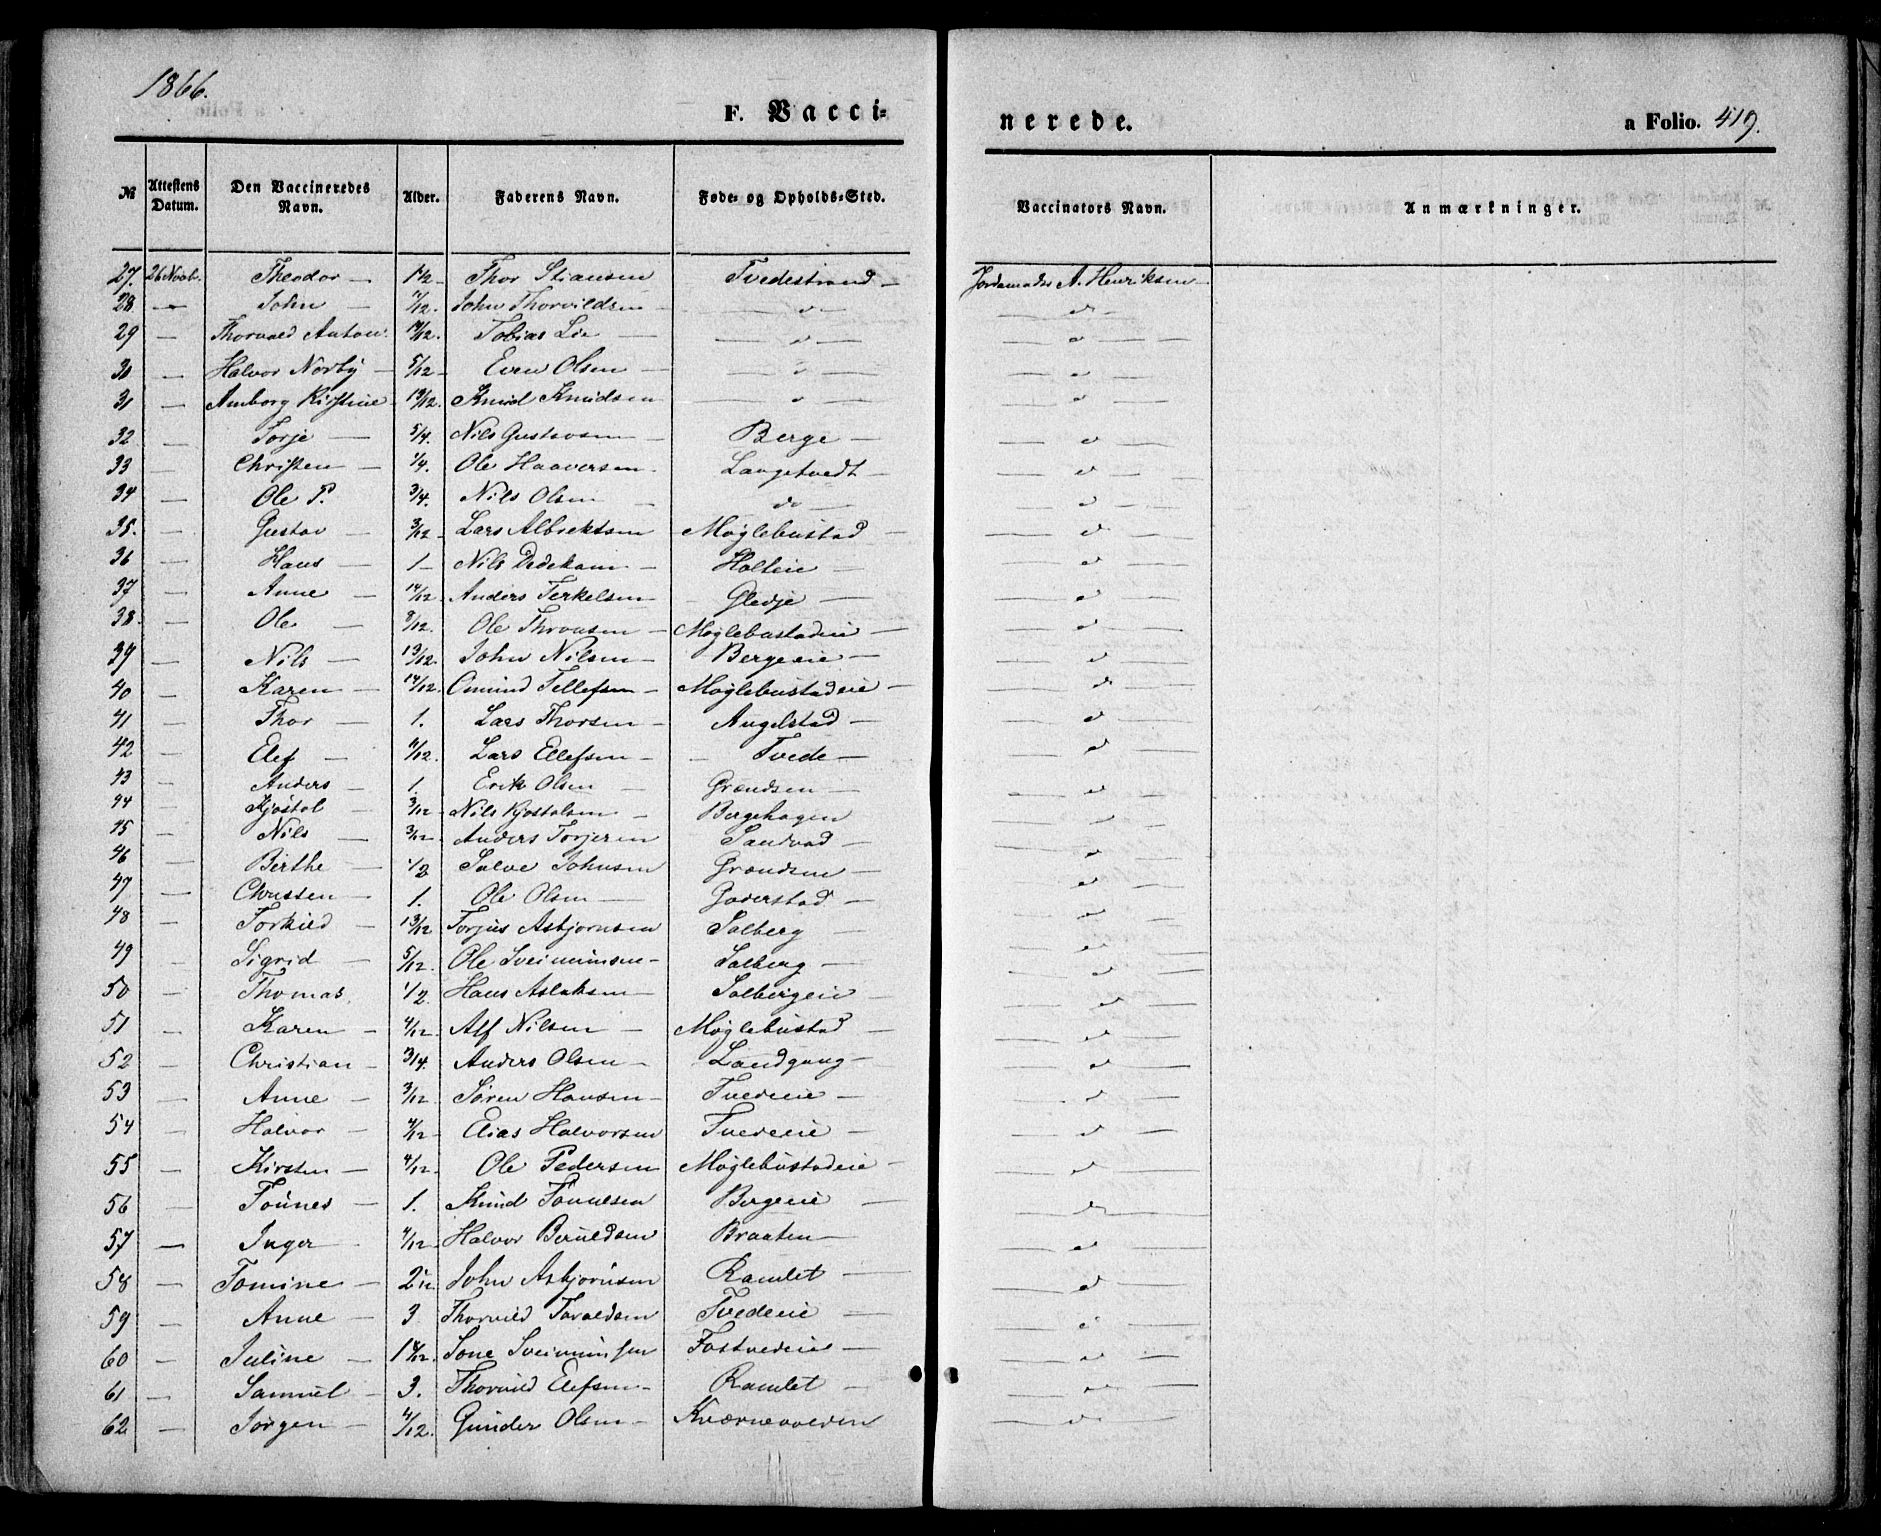 1866.
F. Vacci-
nerede.
a Folio. 419.
№ | Attestens Datum. | Den Vaccineredes Navn. | Alder. | Faderens Navn. | Føde- og Opholds-Sted. | Vaccinators Navn. | Anmærkninger.
27. 26 Novb. Theodor — 1½ Thor Stiansen Tvedestrand — Jordemoder A. Henriksen —
28 — John — /12. John Thorvildsen — — " — — " —
29 — Thorvald Anton. /12. Tobias Lie — — " — — " —
30 — Halvor Norby — 5/12 — Even Olsen — — " — — " —
31 — Amborg Kirstine 13/12. Knud Knudsen — " — — " —
32 — Torje — 5/4. Nils Gustavsen — Berge — — " —
33 — Christen — 1/4. Ole Haaversen. Langetvedt — — " —
34 — Ole P. 3/4. Nils Olsen — do — — " —
35. — Gustav — 3/12 — Lars Albrektsen Møglebustad — — " —
36 — Hans — 1 — Nils Dedekam — Holteie — — " —
37 — Anne — 14/12 — Anders Terkelsen — Gledje — — " —
38. — Ole — 8/12. Ole Throndsen — Møglebustadeie — — " —
39 — Nils — 13/12. John Nilsen — Bergeeie — — " —
40 — Karen — 14/12. Omund Tellefsen — Møglebustadeie — — " —
41 — Thor — 1. Lars Thorsen — Angelstad — — " —
42 — Elef — /12. Lars Ellefsen — Tvede — — " —
43 — Anders — 1. Erik Olsen — Grændsen — — " —
44 — Kjøstol — 3/12 — Nils Kjøstolsen — Bergehagen — " —
45 — Nils — 3/12 — Anders Torjesen Sandvad — — " —
46 — Birthe — 1/2 Salve Johnsen Grændsen — — " —
47 — Christen — 1. Ole Olsen — Goderstad — — " —
48 — Torkild — 13/12 Torjus Asbjornsen Solberg — — " —
49 — Sigrid — 5/12. Ole Sveinunsen — Solberg — — " —
50 — Thomas. 1/2 Hans Aslaksen — Solbergeie — — " —
51 — Karen — 4/12 — Alf Nilsen — Møglebustad — — " —
52 — Christian — 3/4. Anders Olsen — Landgang — — " —
53 — Anne — 3/12 — Søren Hansen — Tvedeeie — — " —
54 — Halvor — 4/12 Elias Halvorsen Tvedeeie — — " —
55 — Kirsten — 4/12. Ole Pedersen Møglebustadeie — — " —
56 — Tønnes — 1. Knud Tønnesen Bergeeie — — " —
57 — Inger — 4/12 — Halvor Beruldsen Braaten — — " —
58 — Tomine — 2 John Asbjornsen Ramlet — — " —
59 — Anne — 3 Thorvild Taraldsen Tvedeeie — — " —
60 — Juline — 1 /12. Tone Sveinunsen Fostvedeeie — — " —
61 — Samuel — 3. Thorvild Elefsen — Ramlet — — " —
62 — Jørgen — 4/12. Gunder Olsen — Kværnevolden — " —